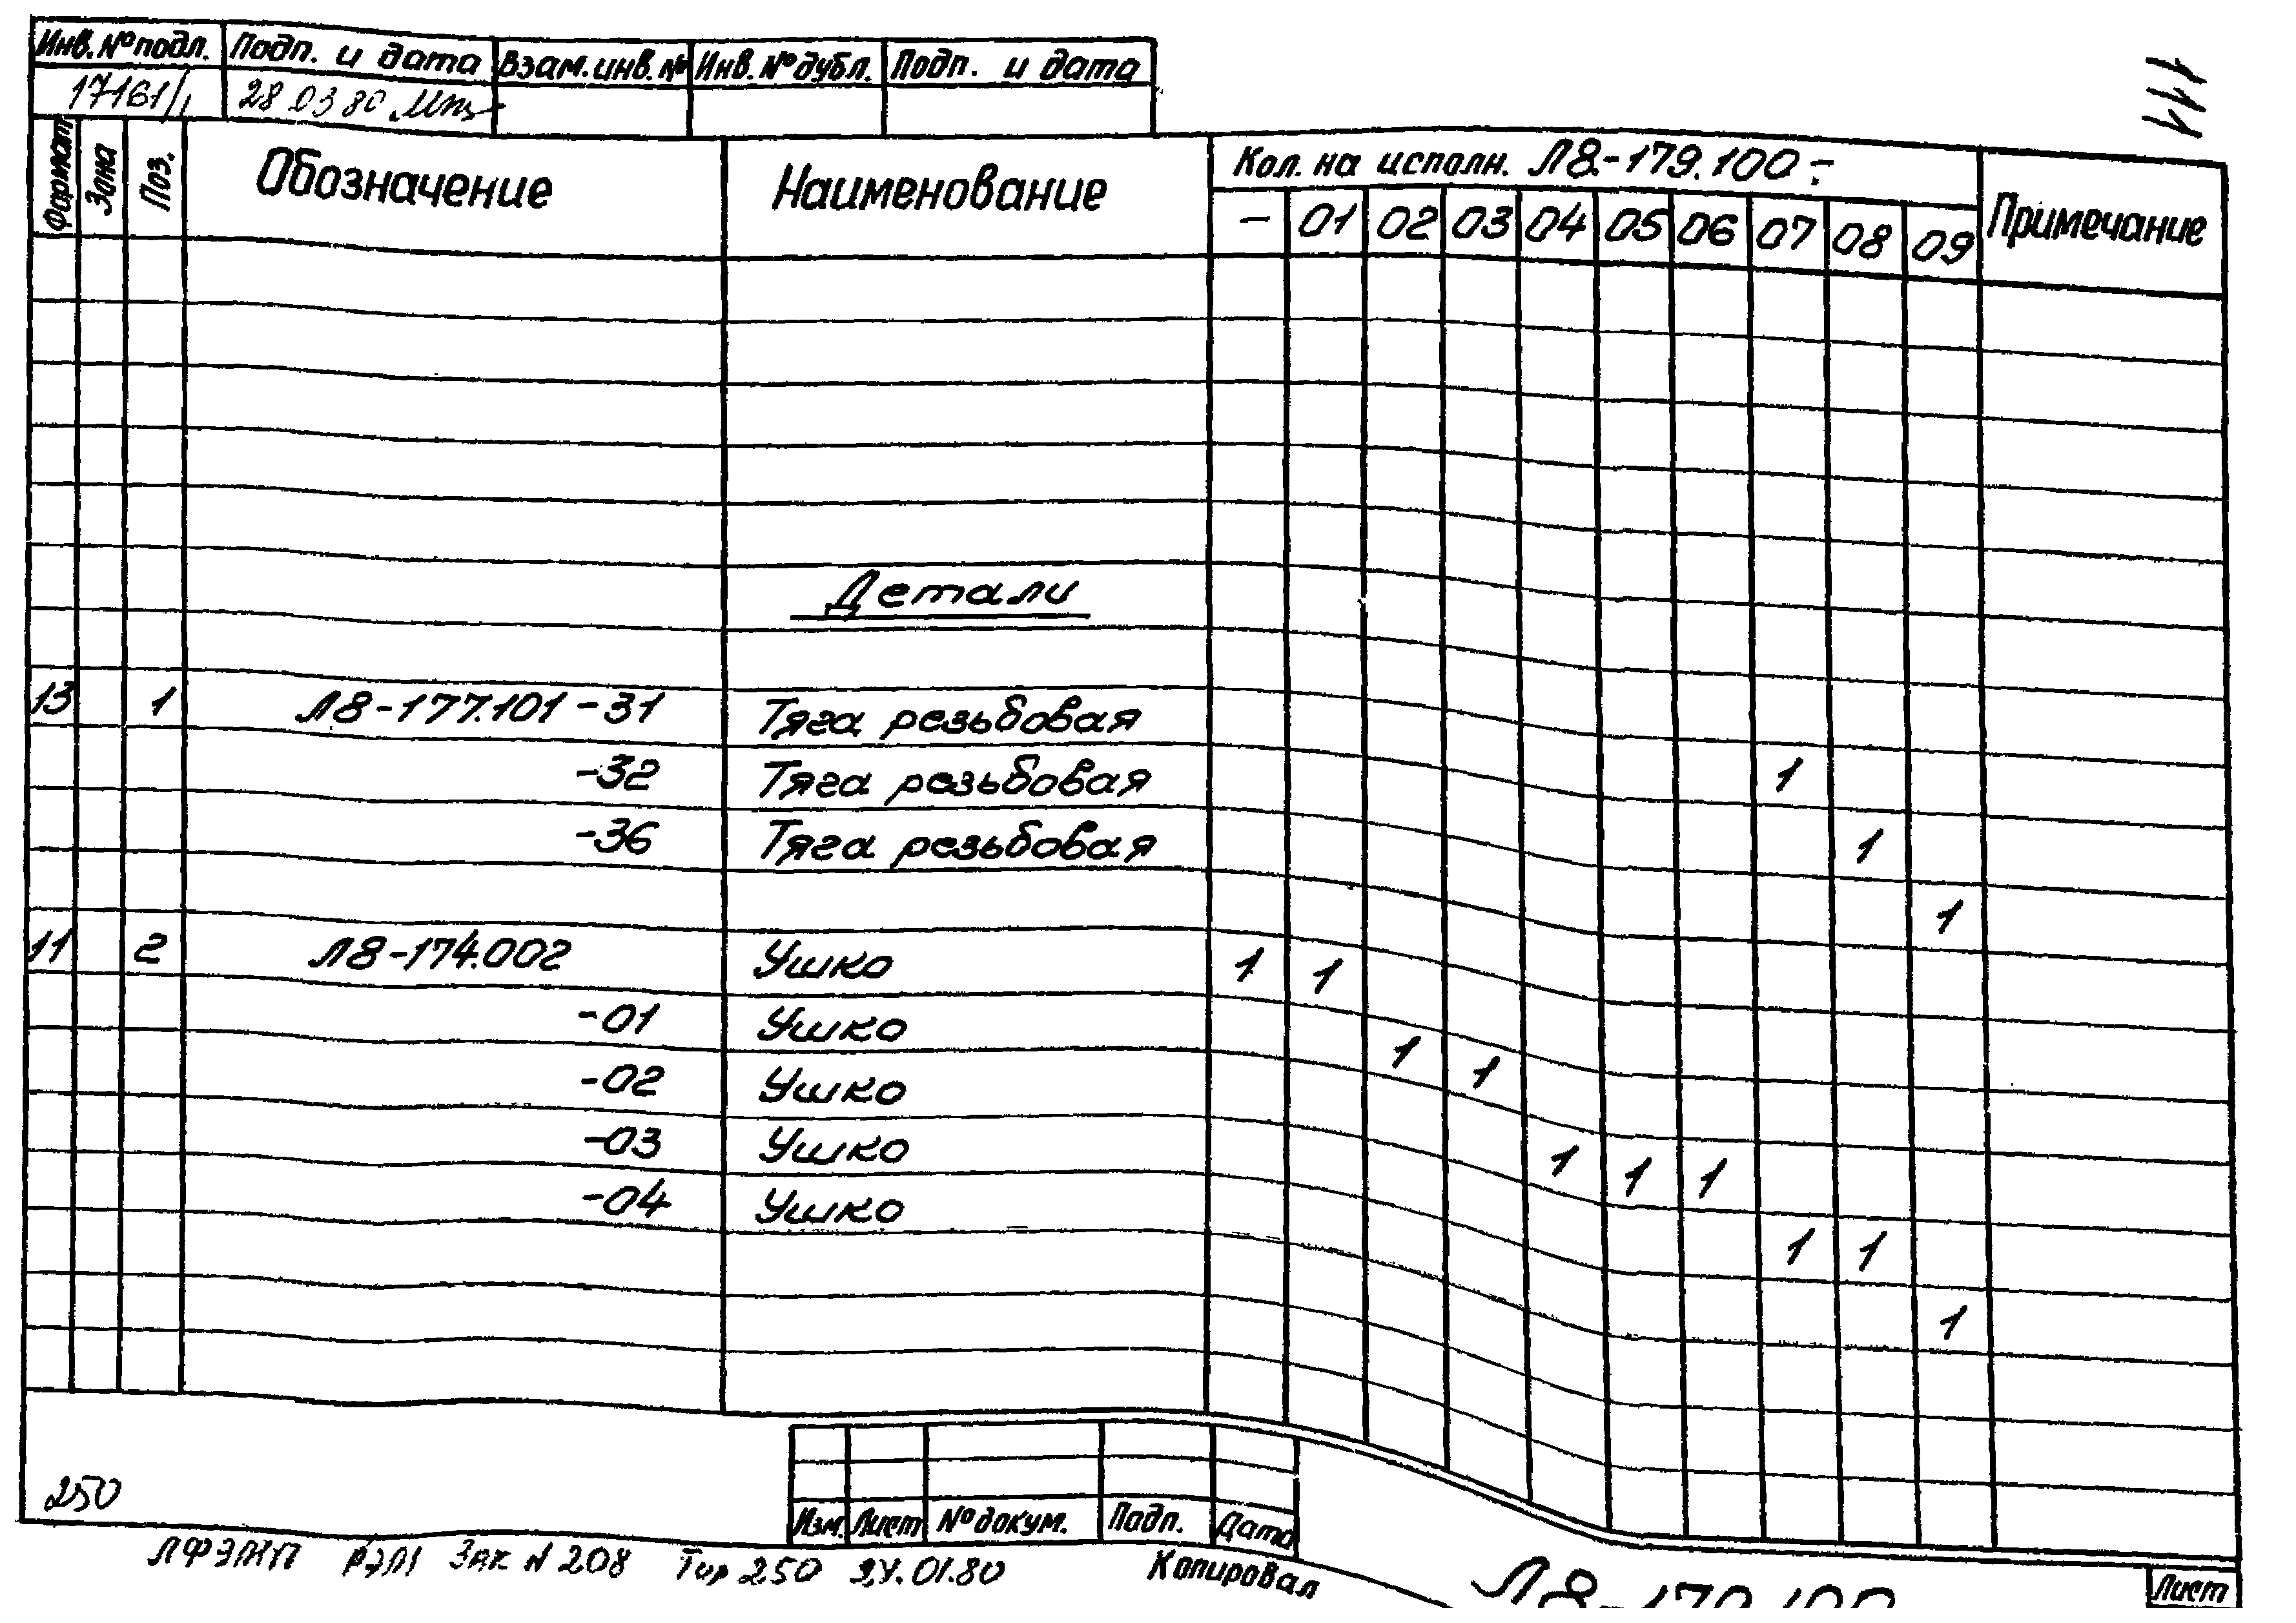 Инв. № подл. Подп. и дата Взам. инв. № Инв. № дубл. Подп. и дата
17161/1 28 03 80
111
Формат Зона Поз. Обозначение Наименование Кол. на исполн. Л8-179.100-: Примечание
- 01 02 03 04 05 06 07 08 09
Детали
13 1 Л8-177.101 -31 Тяга резьбовая 1
-32 Тяга резьбовая 1
-36 Тяга резьбовая 1
11 2 Л8-174.002 Ушко 1 1
-01 Ушко 1 1
-02 Ушко 1 1 1
-03 Ушко 1 1
-04 Ушко 1
250
Изм. Лист № докум. Подп. Дата
Зак N 208 Тир 250 01.80
Копировал
Лист